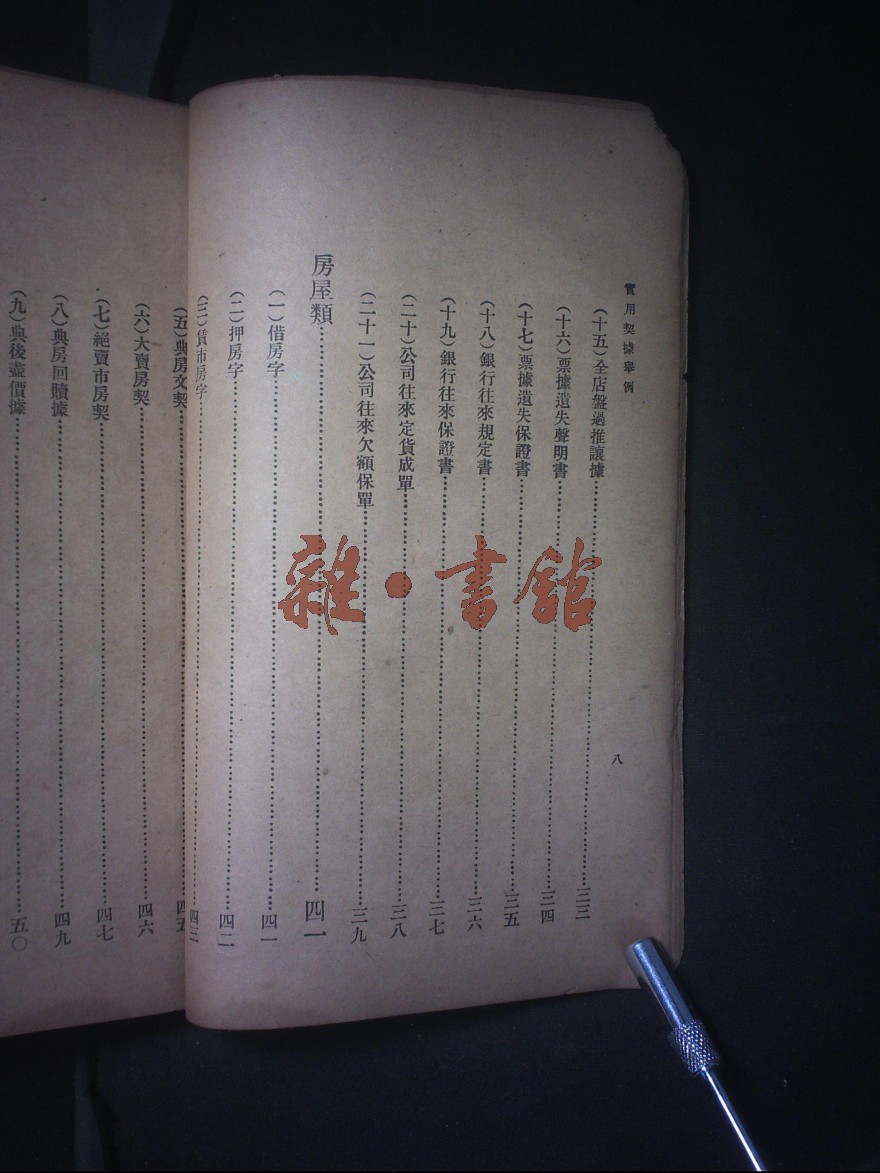 實用契據舉例
八
(十五)全店盤過推讓據……三三
(十六)票據遺失聲明書……三四
(十七)票據遺失保證書……三五
(十八)銀行往來規定書……三六
(十九)銀行往來保證書……三七
(二十)公司往來定貨成單……三八
(二十一)公司往來欠額保單……三九
房屋類……四一
(一)借房字……四一
(二)押房字……四二
(三)賃市房字……四三
(五)典房文契……四五
(六)大賣房契……四六
(七)絕賣市房契……四七
(八)典房回贖據……四九
(九)典後盡價據……五〇
雜·書館